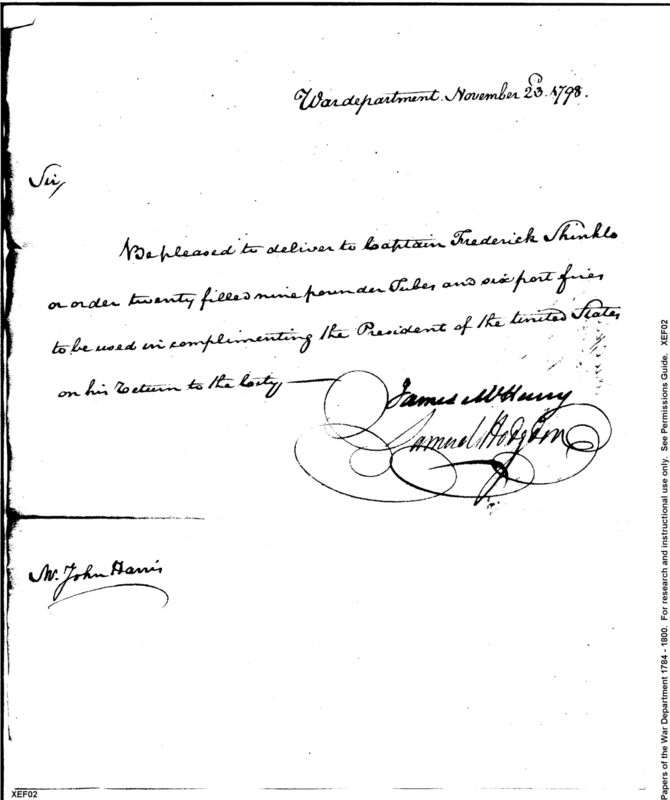 War department. November 23. 1798.
Sir,
Be pleased to deliver to Captain Frederick Shinkle
or order twenty filled nine pounder Tubes and six port fires
to be used in complimenting the President of the United States
on his Return to the City
James McHenry
Samuel Hodgdon
Mr. John Harris
XEF02
Papers of the War Department 1784 - 1800. For research and instructional use only. See Permissions Guide. XEF02